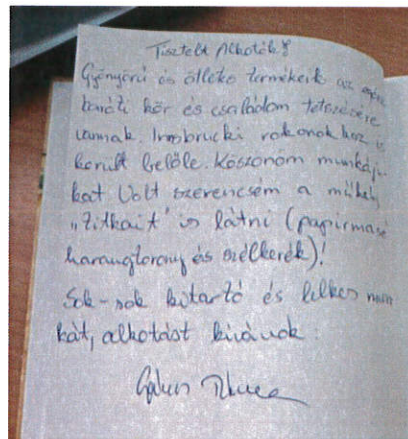 Tisztelt Alkotók!
Gyönyörű és ötletes termékeik az egész
baráti kör és családom tetszésére
vannak. Innsbrucki rokonokhoz is
került belőle. Köszönöm munkáju-
kat. Volt szerencsém a műhely
„titkait" is látni (papírmasé
harangtorony és szélkerék)!
Sok-sok kitartó és lelkes mun
kát, alkotást kívánok: